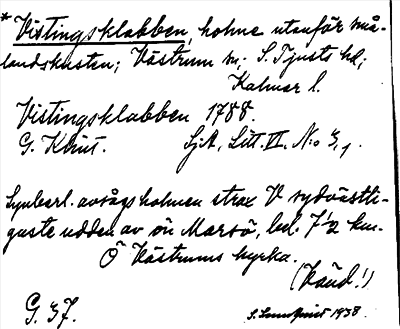 * Vistingsklabben, holme utanför små-
landskusten; Västrum sn; S. Tjusts hd;
Kalmar l.
Vistingsklabben 1788.
G. Klint. Sj.A, Litt. VI. N:o 3,1
Synbarl. avsågs holmen strax V sydvästli-
gaste udden av ön Marsö, bel. 7 1/2 km.
Ö Västrums kyrka.
(Känd!)
G. 37. 1938